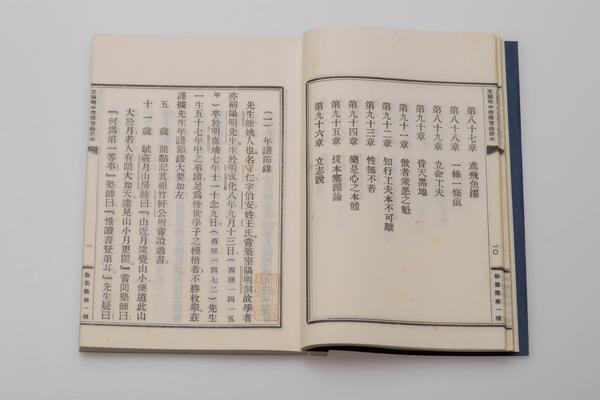 第八十七章　鳶飛魚躍
第八十八章　一棒一條痕
第八十九章　立命工夫
第九十章　昏天黑地
第九十一章　傲者衆惡之魁
第九十二章　知行工夫本不可離
第九十三章　性無不善
第九十四章　樂是心之本體
第九十五章　拔本塞源論
第九十六章　立志說
一〇
(一)　年譜節錄
先生餘姚人也名守仁字伯安姓王氏嘗築室陽明洞故學者
亦稱陽明先生生於明成化八年九月十三日(西歷一四
年)卒於明嘉靖七年十一十念九日(西歷一四七二)先生
一生五十七年中之事蹟足爲後世學子之模楷者不勝枚舉茲
謹據先生年譜節錄大要如左
五　歲　能默記其祖竹軒公所嘗讀過書
十一歲　賦蔽月山房詩曰『山近月遠覺月小便道此山
大於月若人有眼大如天還見山小月更闊』嘗問塾師曰
『何爲第一等事』塾師曰『惟讀書登第耳』先生疑曰
一